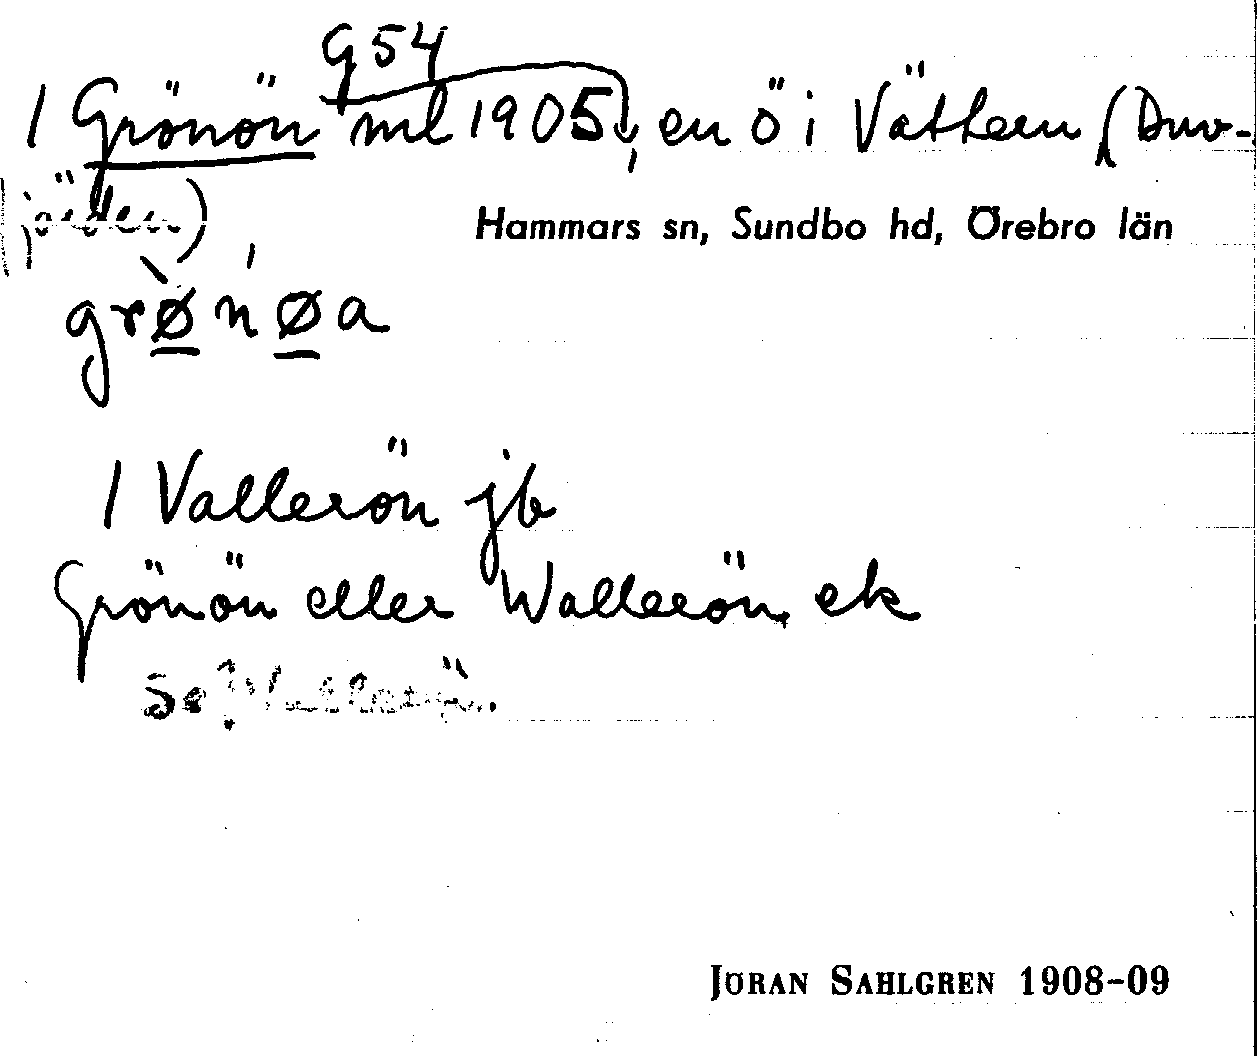 G54
/ Grönön ml 1905, en ö i Vättern (Duv-
fjärden)
Hammars sn, Sundbo hd, Örebro län
grø̀nǿa
/ Vallerön jb
Grönön eller Wallerön ek
Se Vallerön.
JÖRAN SAHLGREN 1908-09